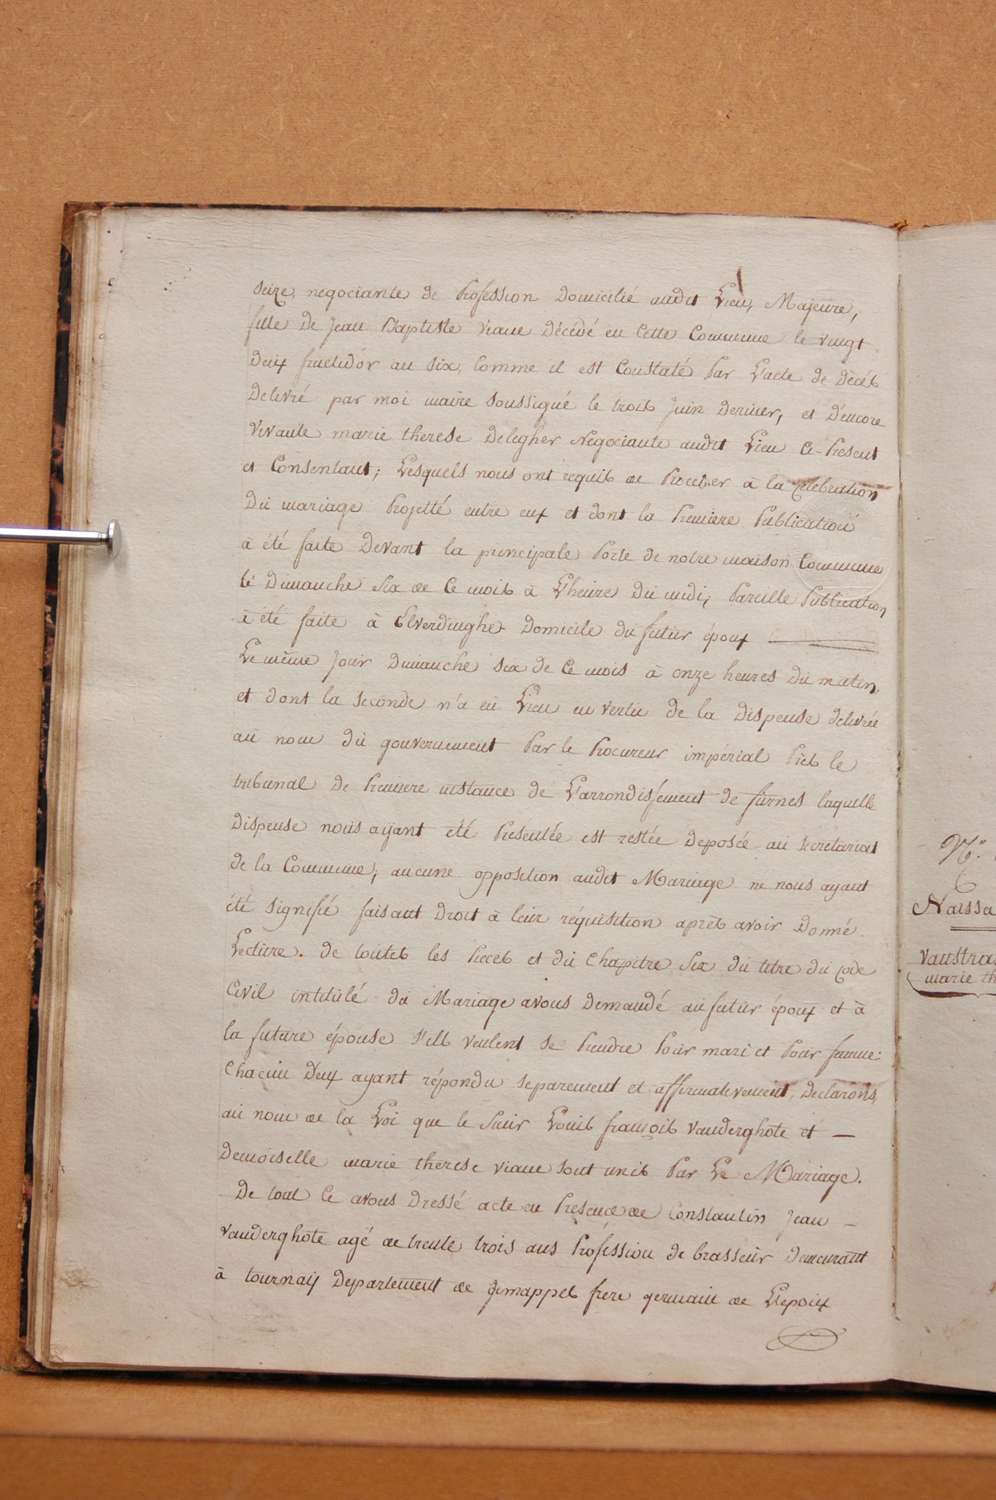 seize, negociante de Profession domicilié audit Lieu, Majeure,
fille de Jean Baptiste viane décédé en cette Commune le vingt
deux fructidor an six, Comme il est Constaté par L'acte de décès
delivré par moi maire soussigné le trois Juin dernier, et d'encore
vivante marie therese deleghèr Negociante audit Lieu Ce-Present
et Consentant; Lesquels nous ont requis de Proceder a la Célébration
du mariage Projetté entre eux et dont la Premiere Publication
a été faite devant la principale Porte de notre maison Commune
le Dimanche six de Ce mois à L'heure du midi, Pareille Publication
a été faite à Elverdinghe domicile du futur époux
Le même Jour dimanche six de Ce mois à onze heures du matin,
et dont la seconde n'a eu Lieu en vertu de la dispense delivrée
au nom du gouvernement Par le Procureur impérial Près le
tribunal de Premiere instance de L'arrondissement de furnes laquelle
dispense nous ayant été Presentée est restée deposée au secretariat
de la Commune; aucune opposition audit Mariage ne nous ayant
été signifié faisant droit à leur réquisition après avoir donné
Lecture. de toutes les Pieces et du Chapitre six du titre du code
Civil intitulé du Mariage avons demandé au futur époux et à
la future épouse s'ils veulent se Prendre Pour mari et Pour famme:
Chacun d'eux ayant répondu separement et affirmativement, declarons
au nom de la Loi que le Sieur Louis françois vanderghote et —
demoiselle marie therese viane sont unis Par Le Mariage.
De tout Ce avons dressé acte en Presence de Constantin Jean —
vanderghote agé de trente trois ans Profession de brasseur demeurant
à tournaÿ departement de Jemappes frere germain de L'epoux
N.º
Naissa
vanstra
marie th